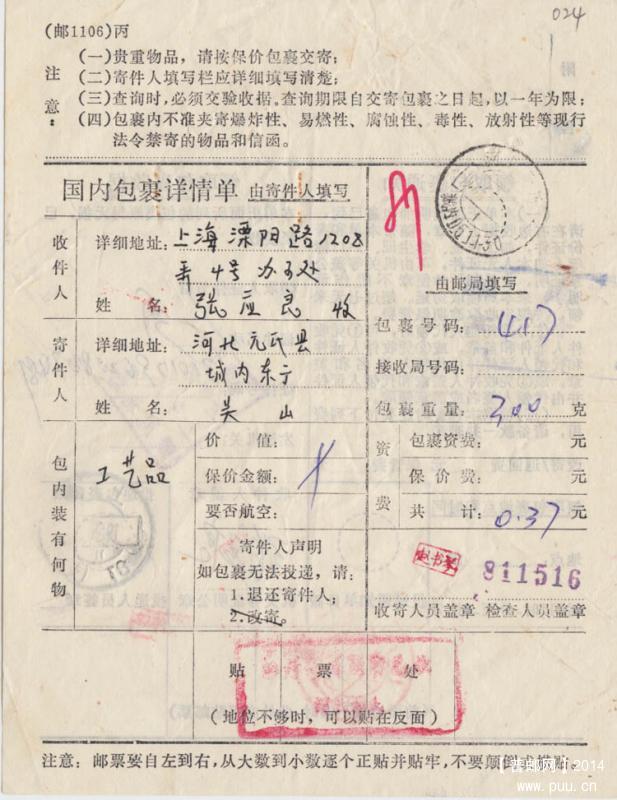 024
(邮1106)丙
注意:
(一)贵重物品，请按保价包裹交寄;
(二)寄件人填写栏应详细填写清楚;
(三)查询时,必须交验收据.查询期限自交寄包裹之日起,以一年为限;
(四)包裹内不准夹寄爆炸性、易燃性、腐蚀性、毒性、放射性等现行
法令禁寄的物品和信函。
国内包裹详情单 由寄件人填写
收件人
详细地址: 上海溧阳路1208
弄4号
姓名: 张应良 收
寄件人
详细地址: 河北元氏县
城内东
姓名: 吴山
包内装有何物
工艺品
价值:
保价金额:
要否航空:
寄件人声明
如包裹无法投递，请:
1.退还寄件人;
2.改寄。
由邮局填写
包裹号码: 417
接收局号码:
包裹重量: 300 克
资费
包裹资费: 元
保价费: 元
共计: 0.37 元
赵书琴
811516
收寄人员盖章 检查人员盖章
贴票处
(地位不够时，可以贴在反面)
注意: 邮票要自左到右，从大数到小数逐个正贴并贴牢，不要颠倒或横贴.
【普邮网】2014
www.puu.cn